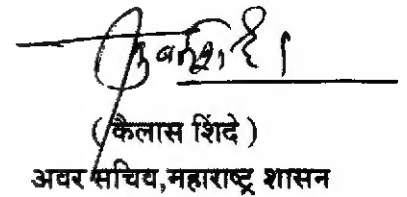 (कैलास शिंदे )
अवर सचिव,महाराष्ट्र शासन